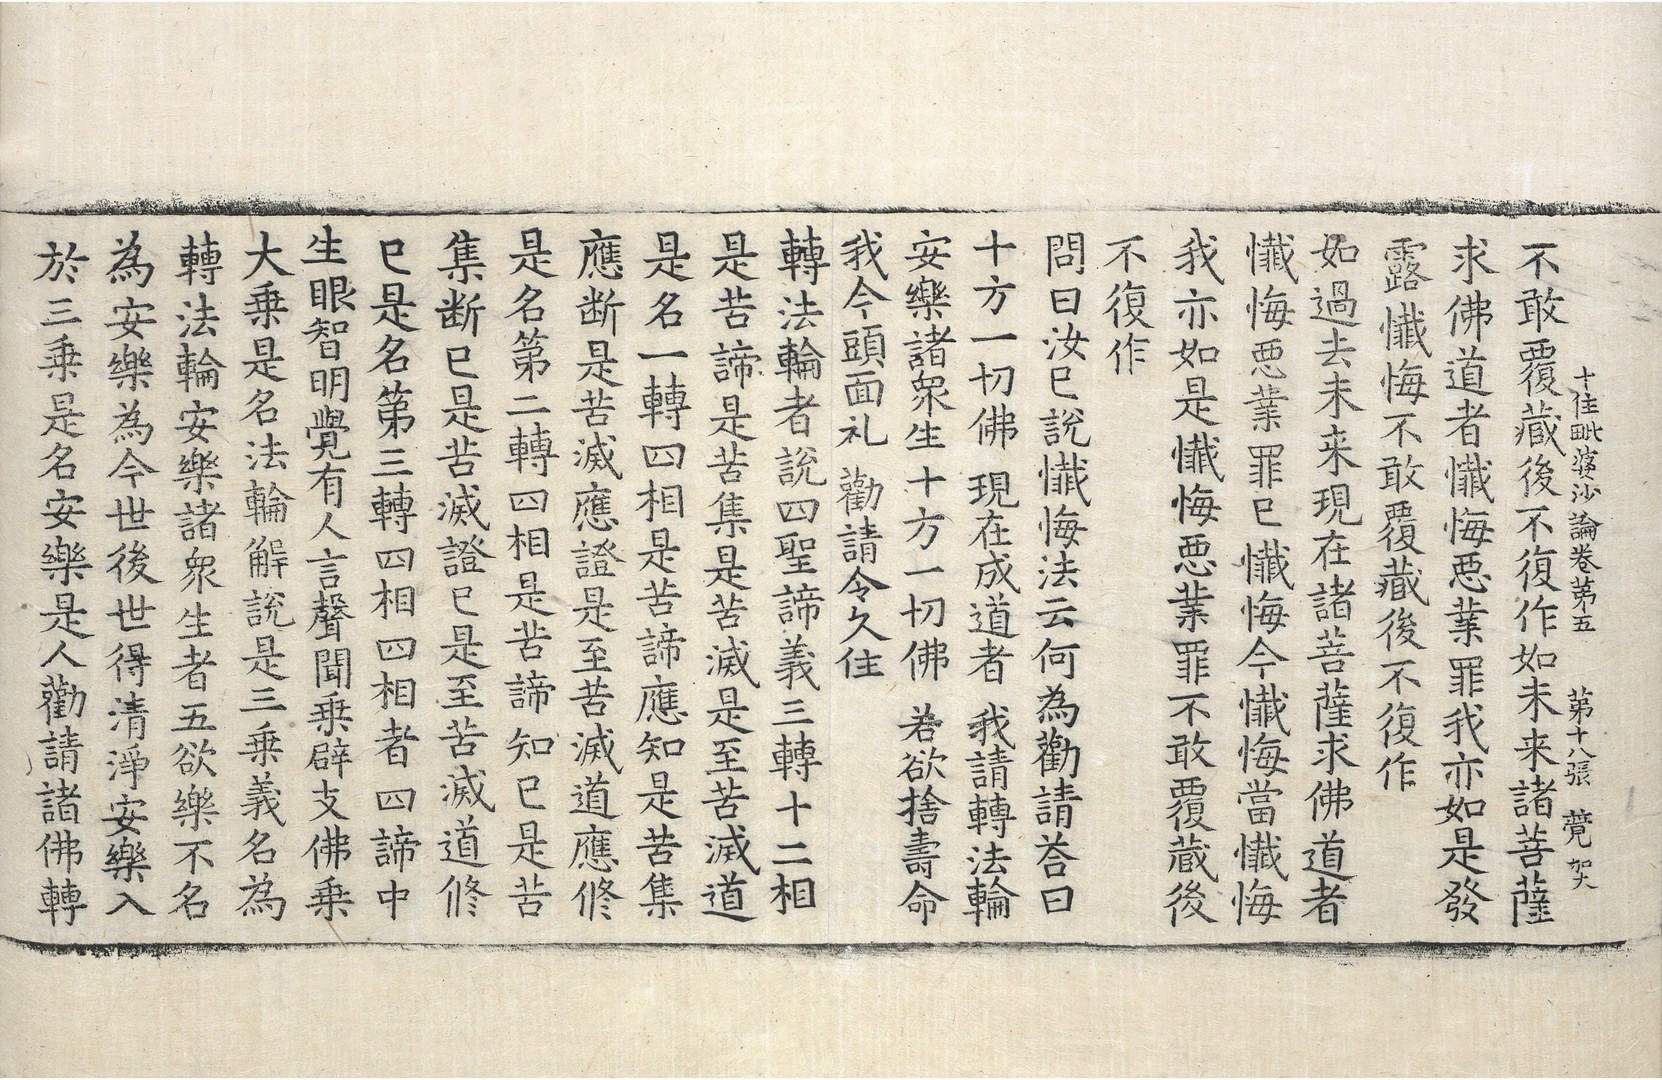 十住毗婆沙論卷苐五 苐十八張 薨 賀大
不敢覆藏後不復作如未来諸菩薩
求佛道者懺悔惡業罪我亦如是發
露懺悔不敢覆藏後不復作
如過去未来現在諸菩薩求佛道者
懺悔惡業罪巳懺悔今懺悔當懺悔
我亦如是懺悔惡業罪不敢覆藏後
不復作
問曰汝巳說懺悔法云何為勸請荅曰
十方一切佛 現在成道者 我請轉法輪
安樂諸衆生 十方一切佛 若欲捨壽命
我今頭面礼 勸請令久住
轉法輪者說四聖諦義三轉十二相
是苦諦是苦集是苦滅是至苦滅道
是名一轉四相是苦諦應知是苦集
應断是苦滅應證是至苦滅道應修
是名第二轉四相是苦諦知巳是苦
集断巳是苦滅證巳是至苦滅道修
巳是名第三轉四相四相者四諦中
生眼智明覺有人言聲聞乗辟支佛乗
大乗是名法輪解說是三乗義名為
轉法輪安樂諸衆生者五欲樂不名
為安樂為今世後世得清淨安樂入
於三乗是名安樂是人勸請諸佛轉